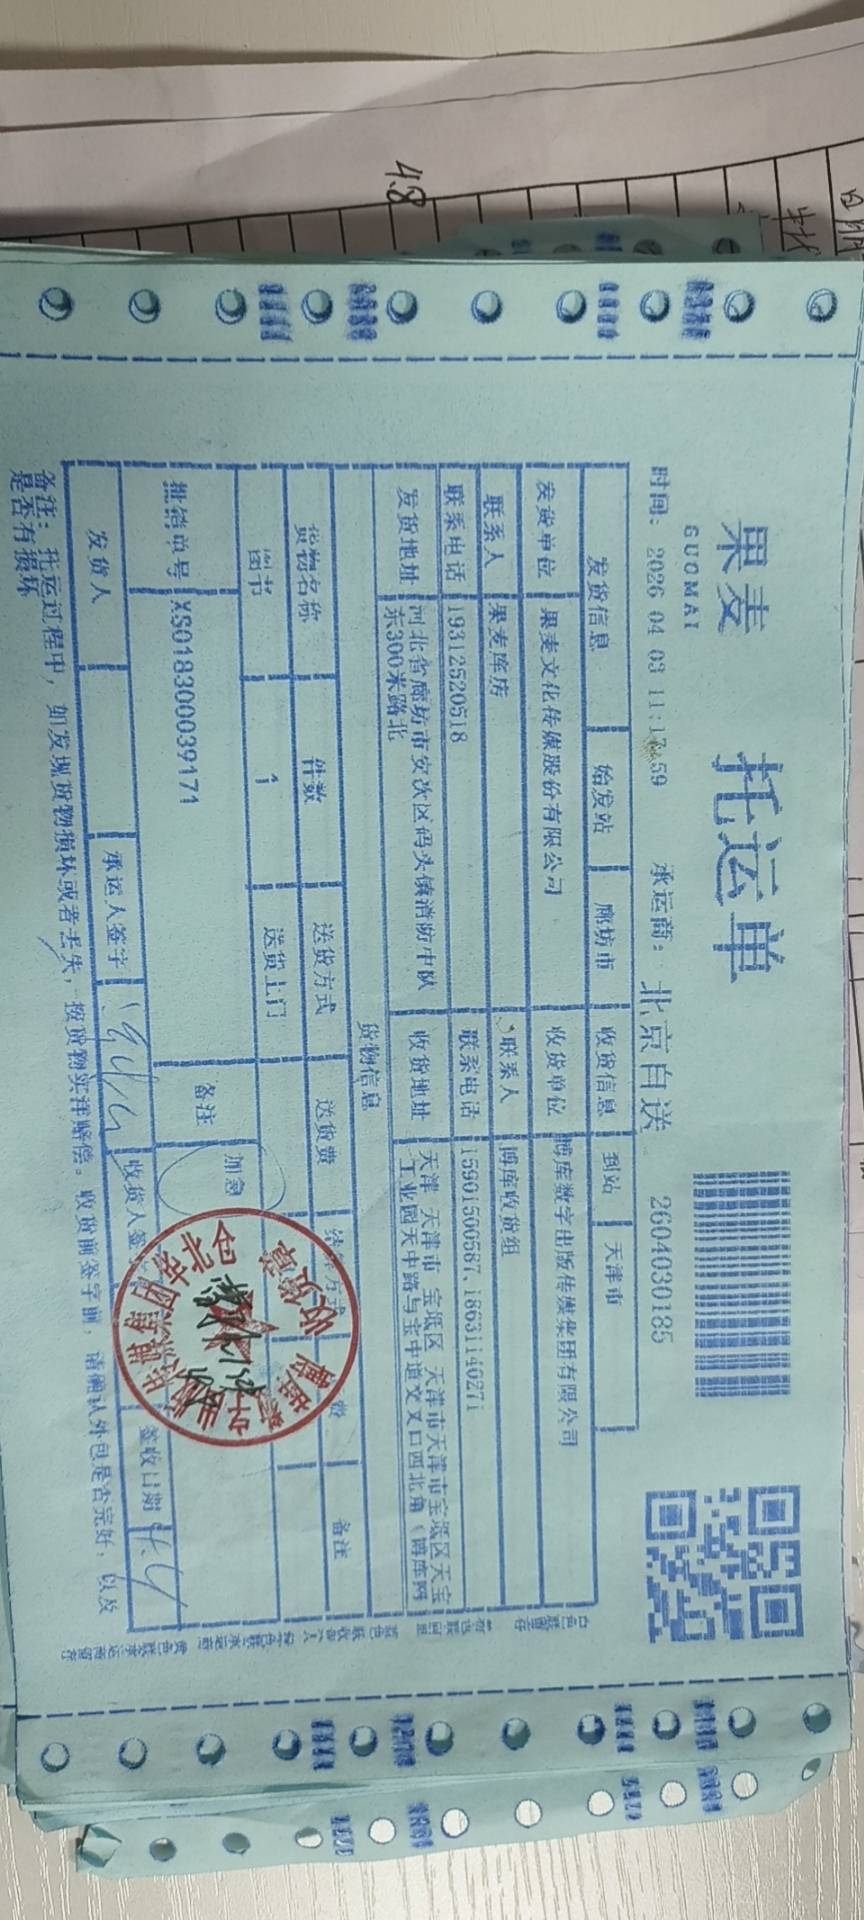 4.8
果麦
GUOMAI
托运单
时间: 2026-04-03 11:13:59
承运商: 北京自送
2604030185
发货信息 始发站 廊坊市 收货信息 到站 天津市
发货单位 果麦文化传媒股份有限公司 收货单位 博库数字出版传媒集团有限公司
联系人 果麦库房 联系人 博库收货组
联系电话 19312520518 联系电话 15901500587、18631140271
发货地址 河北省廊坊市安次区码头镇消防中队
东300米路北
收货地址 天津 天津市 宝坻区 天津市天津市宝坻区天宝
工业园天中路与宝中道交叉口西北角（博库网
货物信息
货物名称 件数 送货方式 送货费 备注
图书 1 送货上门
批销单号 XS018300039171 备注 加急
发货人 承运人签字 收货人签 签收日期 4.4
备注: 托运过程中，如发现货物损坏或者丢失，按货物实洋赔偿。收货前签字前，请确认外包是否完好，以及
是否有损坏
收货章